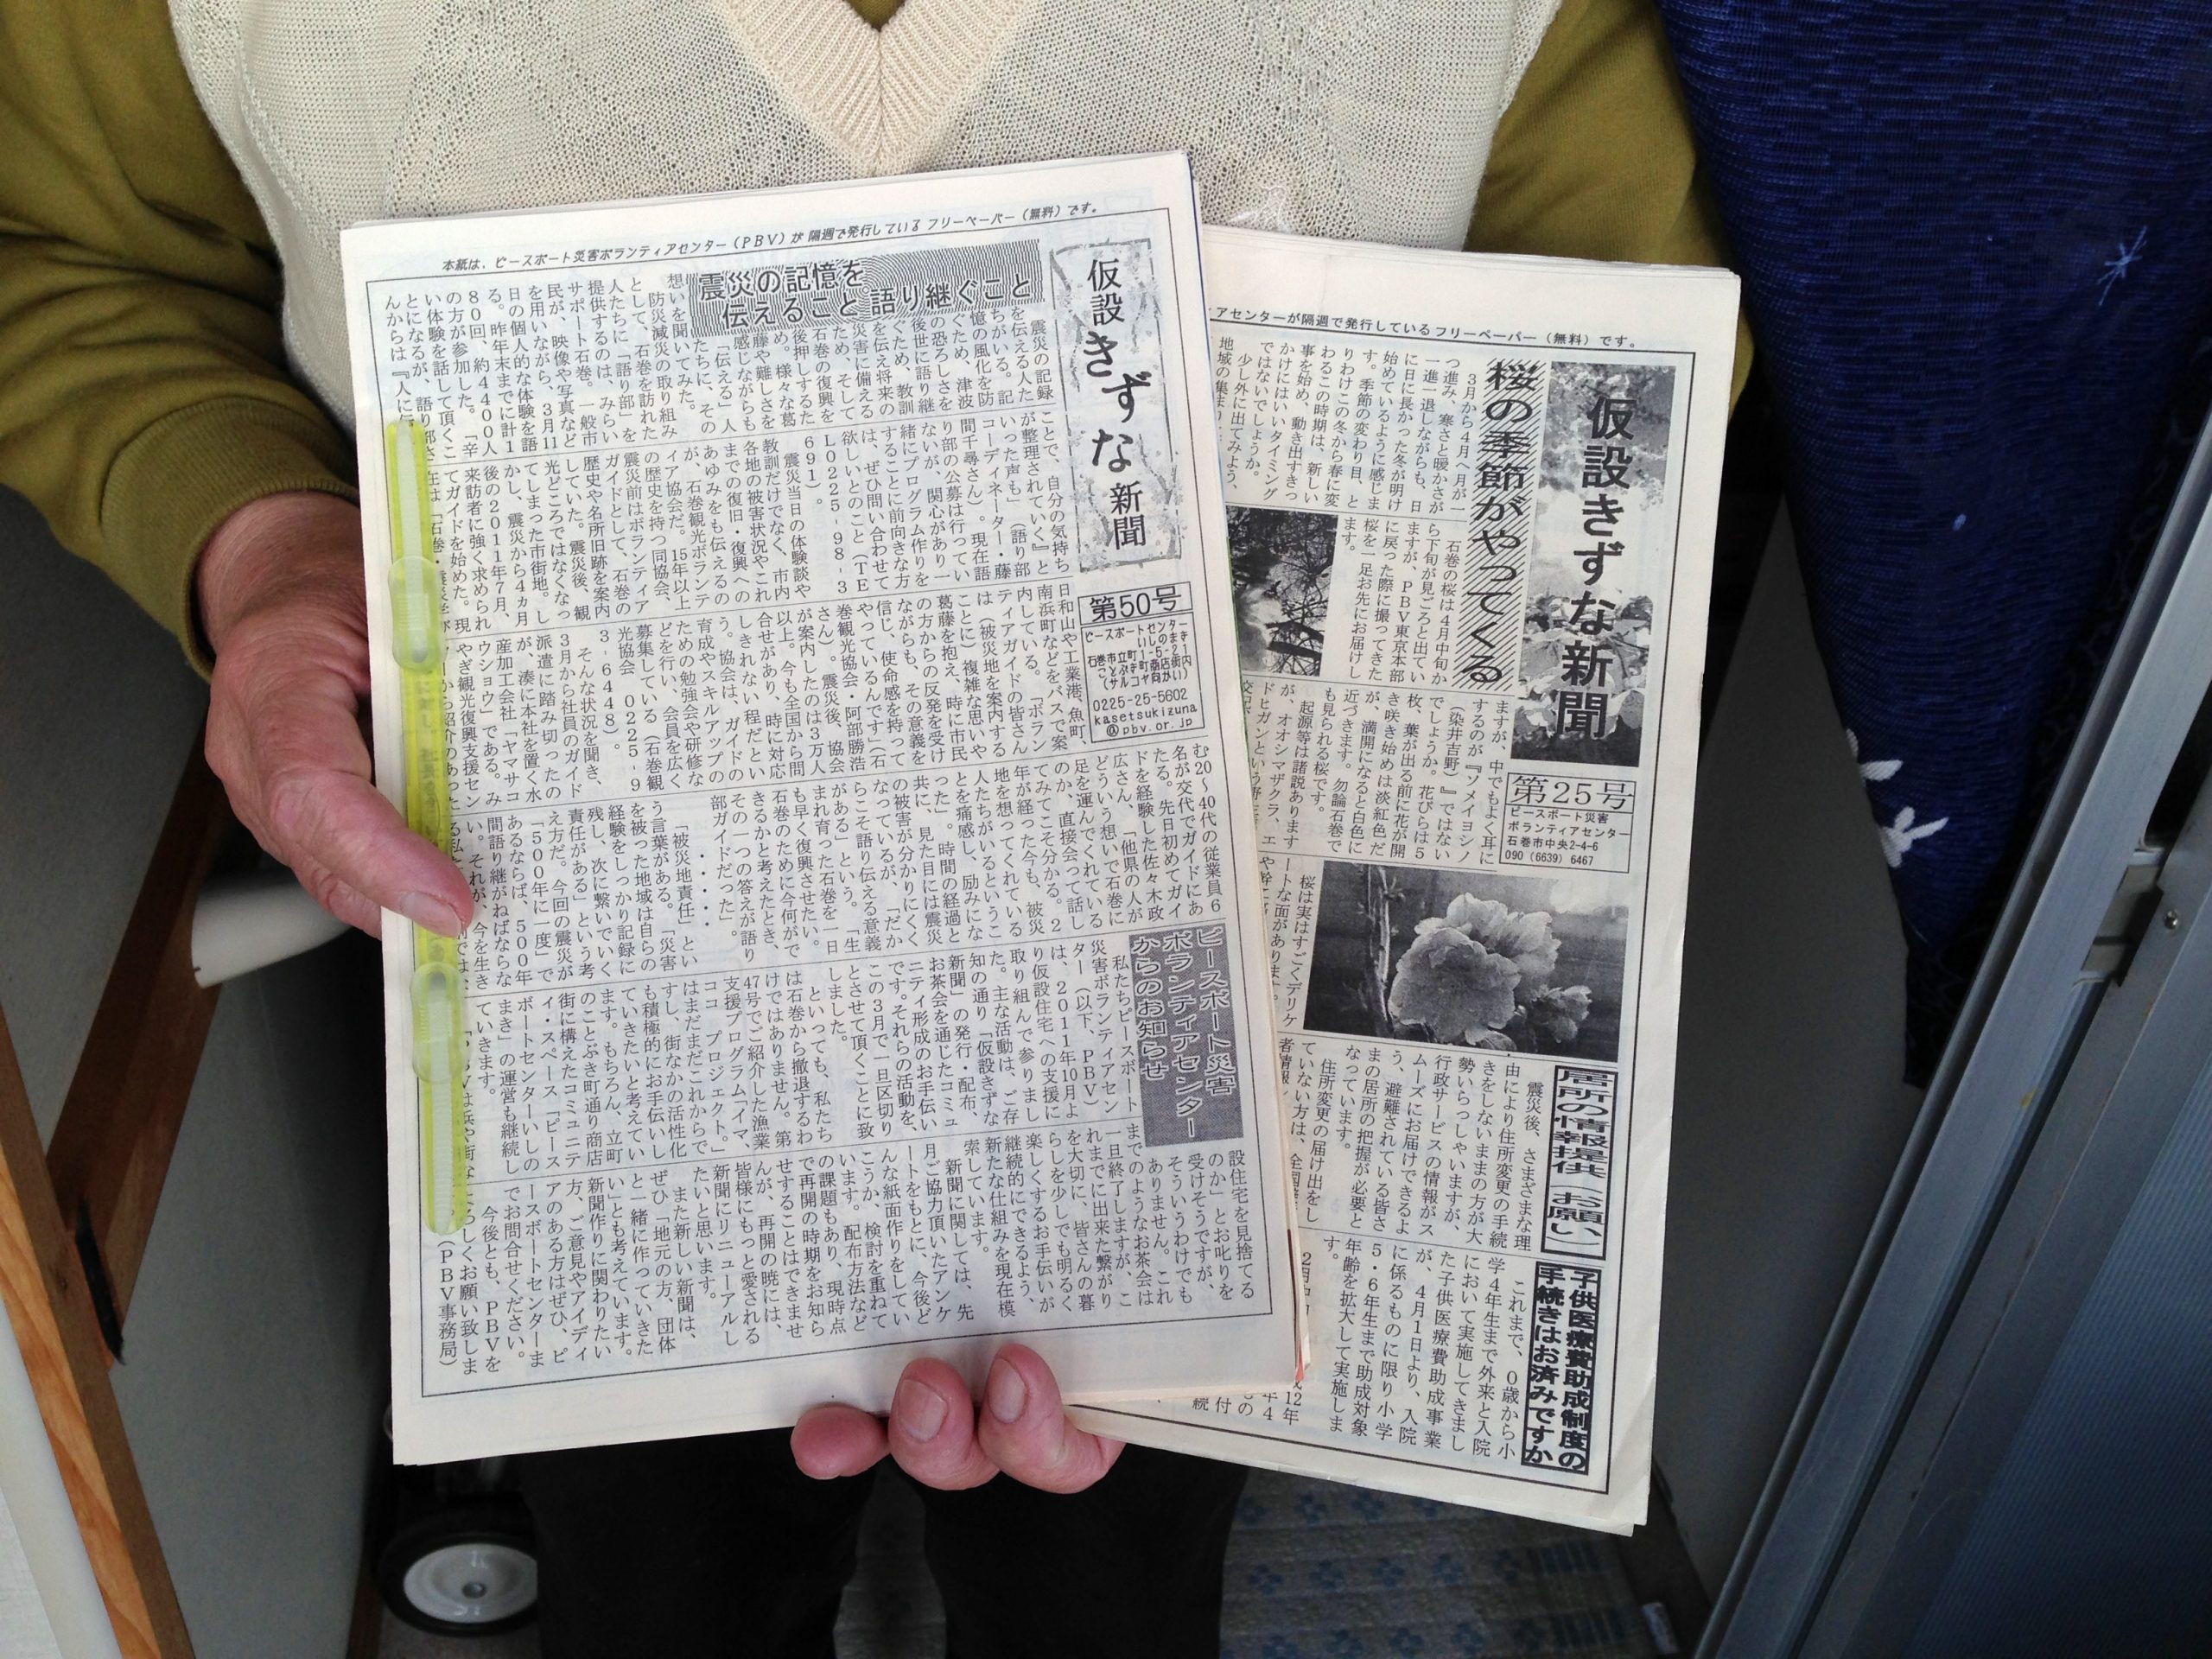 本紙は、ピースボート災害ボランティアセンター(PBV)が 隔週で発行している フリーペーパー(無料)です。
仮設きずな新聞
第50号
ピースボートセンター
いしのまき
石巻市立町1-5-21
ことぶき町商店街内
0225-25-5602
kasetsukizuna
@pbv.or.jp
震災の記憶を
伝えること 語り継ぐこと
震災の記録
を伝える人た
ちがいる。記
憶の風化を防
ぐため、津波
の恐ろしさを
後世に語り継
ぐため、教訓
を伝え将来の
災害に備える
ため、そして
石巻の復興を
後押しするた
め。様々な葛
藤や難しさを
感じながらも
「伝える」人
たちに、その
想いを聞いてみた。
防災減災の取り組み
として、石巻を訪れた
人たちに「語り部」を
提供するのは、みらい
サポート石巻。一般市
民が、映像や写真など
を用いながら、3月11
日の個人的な体験を語
る。昨年末までに計1
80回、約4400人
の方が参加した。「辛
い体験を話して頂くこ
とになるが、語り部さ
んからは『人に
ことで、自分の気持ち
が整理されていく』と
いった声も」(語り部
コーディネーター・藤
間千尋さん)。現在語
り部の公募は行ってい
ないが、関心があり一
緒にプログラム作りを
することに前向きな方
は、ぜひ問い合わせて
欲しいとのこと(TE
L0225-98-3
691)。
震災当日の体験談や
教訓だけでなく、市内
各地の被害状況やこれ
までの復旧・復興への
あゆみをも伝えるの
が、石巻観光ボランテ
ィア協会だ。15年以上
の歴史を持つ同協会、
震災前はボランティア
ガイドとして、石巻の
歴史や名所旧跡を案内
していた。震災後、観
光どころではなくなっ
てしまった市街地。し
かし、震災から4ヵ月
後の2011年7月、
来訪者に強く求められ
てガイドを始めた。現
在は「石巻・震災
日和山や工業港、魚町、
南浜町などをバスで案
内している。「ボラン
ティアガイドの皆さん
は(被災地を案内する
ことに)複雑な思いや
葛藤を抱え、時に市民
の方からの反発を受け
ながらも、その意義を
信じ、使命感を持って
やっているんです」(石
巻観光協会・阿部勝浩
さん)。震災後、協会
が案内したのは3万人
以上。今も全国から問
合せがあり、時に対応
しきれない程だとい
う。協会は、ガイドの
育成やスキルアップの
ための勉強会や研修な
どを行い、会員を広く
募集している(石巻観
光協会 0225-9
3-6448)。
そんな状況を聞き、
3月から社員のガイド
派遣に踏み切ったの
が、湊に本社を置く水
産加工会社「ヤマサコ
ウショウ」である。み
やぎ観光復興支援セン
ターから紹介のあった
む20~40代の従業員6
名が交代でガイドにあ
たる。先日初めてガイ
ドを経験した佐々木政
広さん。「他県の人が
どういう想いで石巻に
足を運んでくれている
のか、直接会って話し
てみてこそ分かる。2
年が経った今も、被災
地を想ってくれている
人たちがいるというこ
とを痛感し、励みにな
った」。時間の経過と
共に、見た目には震災
の被害が分かりにくく
なっているが、「だか
らこそ語り伝える意義
がある」という。「生
まれ育った石巻を一日
も早く復興させたい。
石巻のために今何がで
きるかと考えたとき、
その一つの答えが語り
部ガイドだった」。
・・・・・
「被災地責任」とい
う言葉がある。「災害
を被った地域は自らの
経験をしっかり記録に
残し、次に繋いでいく
責任がある」という考
え方だ。今回の震災が
「500年に一度」で
あるならば、500年
間語り継がねばならな
い。それが、今を生き
ピースボート災害
ボランティアセンター
からのお知らせ
私たちピースボート
災害ボランティアセン
ター(以下、PBV)
は、2011年10月よ
り仮設住宅への支援に
取り組んで参りまし
た。主な活動は、ご存
知の通り「仮設きずな
新聞」の発行・配布、
お茶会を通じたコミュ
ニティ形成のお手伝い
です。それらの活動を、
この3月で一旦区切り
とさせて頂くことに致
しました。
といっても、私たち
は石巻から撤退するわ
けではありません。第
47号でご紹介した漁業
支援プログラム「イマ、
ココ プロジェクト。」
はまだまだこれからで
すし、街なかの活性化
も積極的にお手伝いし
ていきたいと考えてい
ます。もちろん、立町
のことぶき町通り商店
街に構えたコミュニテ
ィ・スペース「ピース
ボートセンターいしの
まき」の運営も継続し
ていきます。
設住宅を見捨てる
のか」とお叱りを
受けそうですが、
そういうわけでも
ありません。これ
までのようなお茶会は
一旦終了しますが、こ
れまでに出来た繋がり
を大切に、皆さんの暮
らしを少しでも明るく
楽しくするお手伝いが
継続的にできるよう、
新たな仕組みを現在模
索しています。
新聞に関しては、先
月ご協力頂いたアンケ
ートをもとに、今後ど
んな紙面作りをしてい
こうか、検討を重ねて
います。配布方法など
の課題もあり、現時点
で再開の時期をお知ら
せすることはできませ
んが、再開の暁には、
皆様にもっと愛される
新聞にリニューアルし
たいと思います。
また新しい新聞は、
ぜひ「地元の方、団体
と一緒に作っていきた
い」とも考えています。
新聞作りに関わりたい
方、ご意見やアイディ
アのある方はぜひ、ピ
ースボートセンターま
でお問合せください。
今後とも、PBVを
よろしくお願い致しま
す。(PBV事務局)
アセンターが隔週で発行しているフリーペーパー(無料)です。
仮設きずな新聞
第25号
ピースボート災害
ボランティアセンター
石巻市中央2-4-6
090(6639)6467
桜の季節がやってくる
3月から4月へ月が一
つ進み、寒さと暖かさが
一進一退しながらも、日
に日に長かった冬が明け
始めているように感じま
す。季節の変わり目、と
りわけこの冬から春に変
わるこの時期は、新しい
事を始め、動き出すきっ
かけにはいいタイミング
ではないでしょうか。
少し外に出てみよう、
地域の集まり
石巻の桜は4月中旬か
ら下旬が見ごろと出てい
ますが、PBV東京本部
に戻った際に撮ってきた
桜を一足お先にお届けし
ます。
ますが、中でもよく耳に
するのが『ソメイヨシノ
(染井吉野)』ではない
でしょうか。花びらは5
枚、葉が出る前に花が開
き咲き始めは淡紅色だ
が、満開になると白色に
近づきます。勿論石巻で
も見られる桜です。
起源等は諸説あります
が、オオシマザクラ、エ
ドヒガンという野
桜は実はすごくデリケ
ートな面があります。
居所の情報提供(お願い)
震災後、さまざまな理
由により住所変更の手続
きをしないままの方が大
勢いらっしゃいますが、
行政サービスの情報がス
ムーズにお届けできるよ
う、避難されている皆さ
まの居所の把握が必要と
なっています。
住所変更の届け出をし
ていない方は、全国避
者情報
子供医療費助成制度の
手続きはお済みですか
これまで、0歳から小
学4年生まで外来と入院
において実施してきまし
た子供医療費助成事業
が、4月1日より、入院
に係るものに限り小学
5・6年生まで助成対象
年齢を拡大して実施しま
す。